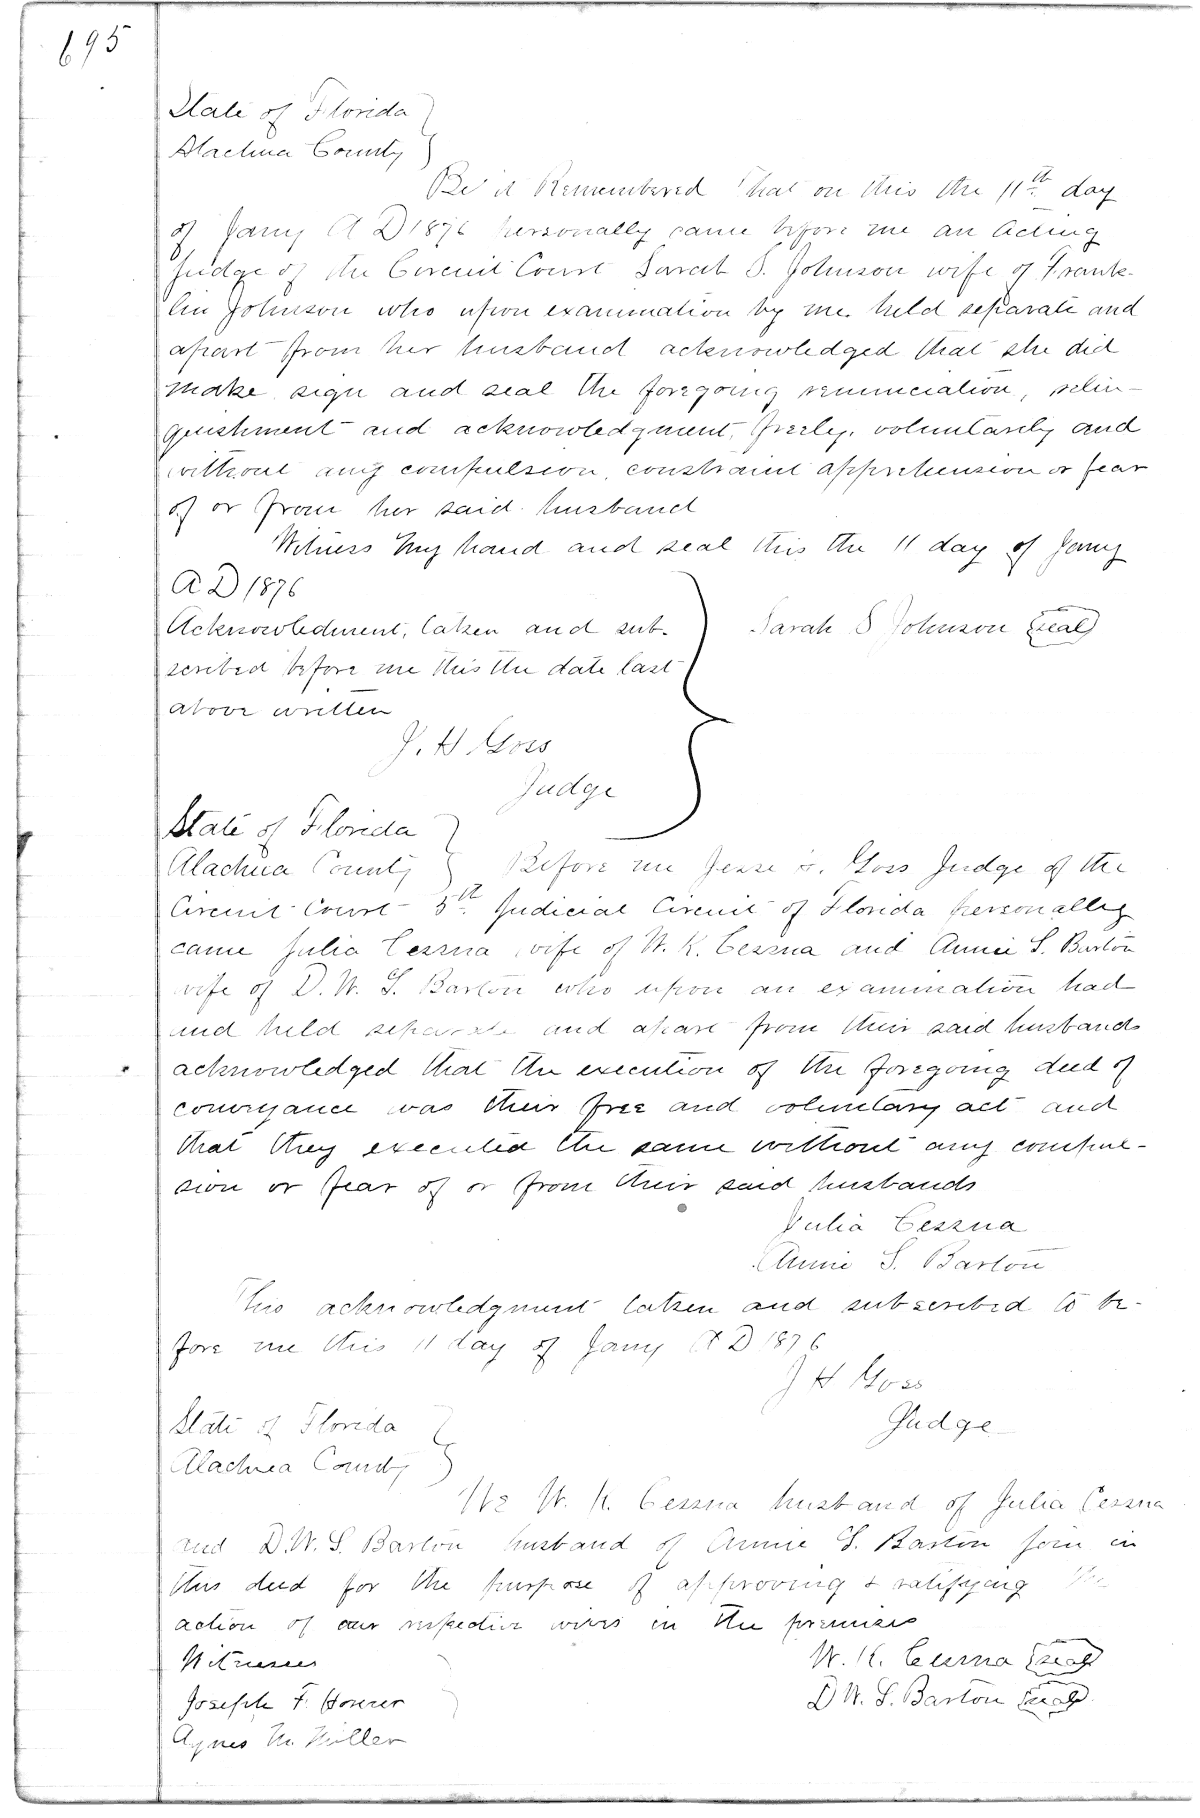 695
State of Florida
Alachua County
Be it Remembered that on this the 11th day
of Jany A D 1876 personally came before me an acting
Judge of the Circuit Court Sarah S. Johnson wife of Frank-
lin Johnson who upon examination by me held separate and
apart from her husband acknowledged that she did
make sign and seal the foregoing renunciation, relin-
quishment and acknowledgment, freely, voluntarily and
without any compulsion, constraint apprehension or fear
of or from her said husband
Witness my hand and seal this the 11 day of Jany
A D 1876
Acknowledment, taken and sub-
scribed before me this the date last
above written
Sarah S Johnson seal
J. H Goss
Judge
State of Florida
Alachua County
Before me Jesse H. Goss Judge of the
Circuit Court 5th Judicial Circuit of Florida personally
came Julia Cessna wife of W. K. Cessna and Annie S. Barton
wife of D. W. S. Barton who upon an examination had
and held separate and apart from their said husbands
acknowledged that the execution of the foregoing deed of
conveyance was their free and voluntary act and
that they executed the same without any compul-
sion or fear of or from their said husbands
Julia Cessna
Annie S. Barton
This acknowledgment taken and subscribed to be-
fore me this 11 day of Jany A D 1876
J H Goss
Judge
State of Florida
Alachua County
We W. K. Cessna husband of Julia Cessna
and D. W. S. Barton husband of Annie S. Barton join in
this deed for the purpose of approving & ratifying the
action of our respective wives in the premises
Witnesses
W. K. Cessna seal
Joseph F.
D W. S. Barton seal
Agnes M. Miller